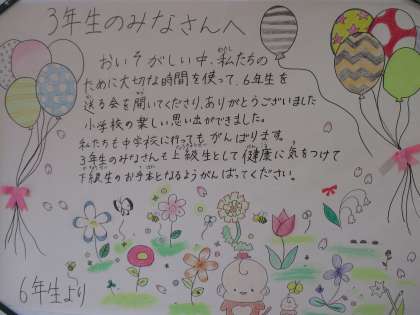 3年生のみなさんへ
おいそがしい中、私たちの
ために大切な時間を使って、6年生を
送る会を開いてくださり、ありがとうございました
小学校の楽しい思い出ができました。
私たちも中学校に行ってもがんばります。
3年生のみなさんも上級生として健康に気をつけて
下級生のお手本となるようがんばってください。
6年生より